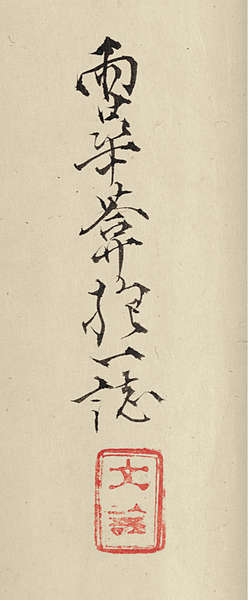 雨華葊抱一誌
文詮